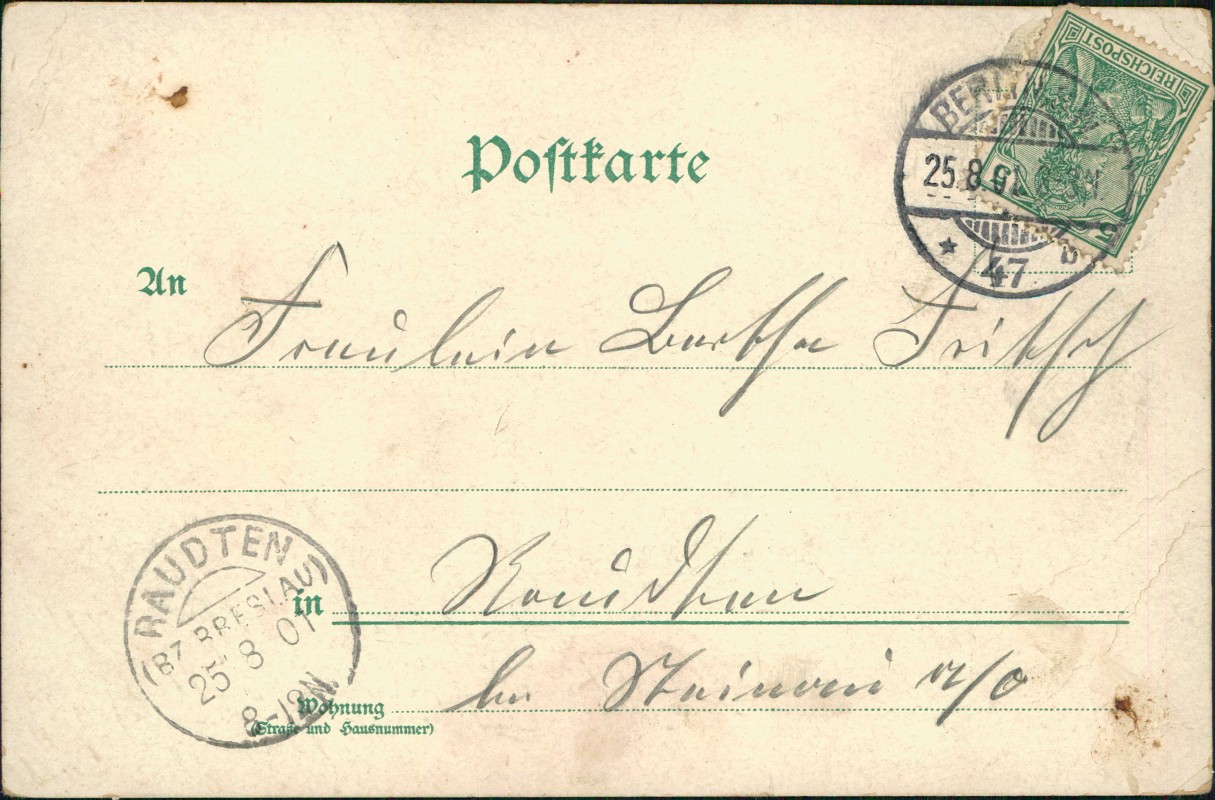 REICHSPOST
5
BERLIN
25.8.01
* 47 b
Postkarte
An
Fräulein Bertha Fritsch
in Raudten
bei Steinau a/O
RAUDTEN
BZ. BRESLAU
25 8 01
8-12N.
Wohnung
(Straße und Hausnummer)